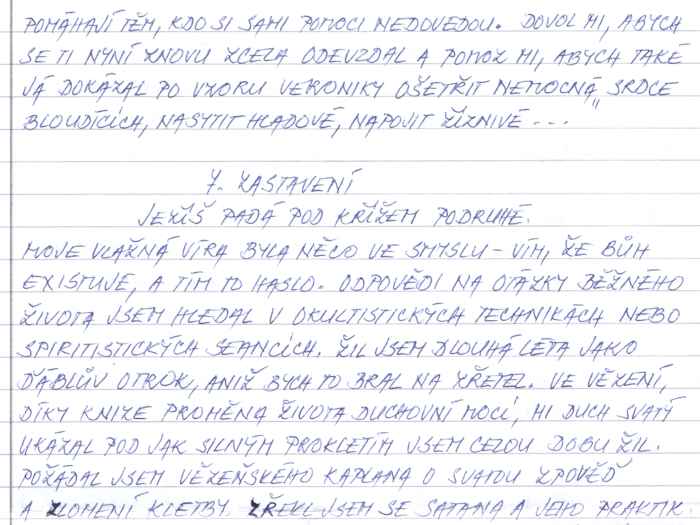 POMÁHAJÍ TĚM, KDO SI SAMI POMOCI NEDOVEDOU. DOVOL MI, ABYCH
SE TI NYNÍ ZNOVU ZCELA ODEVZDAL A POMOZ MI, ABYCH TAKÉ
JÁ DOKÁZAL PO VZORU VERONIKY OŠETŘIT NEMOCNÁ SRDCE
BLOUDÍCÍCH, NASYTIT HLADOVÉ, NAPOJIT ŽÍZNIVÉ..."
7. ZASTAVENÍ
JEŽÍŠ PADÁ POD KŘÍŽEM PODRUHÉ.
MOJE VLAŽNÁ VÍRA BYLA NĚCO VE SMYSLU - VÍM, ŽE BŮH
EXISTUJE, A TÍM TO HASLO. ODPOVĚDI NA OTÁZKY BĚŽNÉHO
ŽIVOTA JSEM HLEDAL V OKULTISTICKÝCH TECHNIKÁCH NEBO
SPIRITISTICKÝCH SEANCÍCH. ŽIL JSEM DLOUHÁ LÉTA JAKO
ĎÁBLŮV OTROK, ANIŽ BYCH TO BRAL NA ZŘETEL. VE VĚZENÍ,
DÍKY KNIZE PROMĚNA ŽIVOTA DUCHOVNÍ MOCÍ, MI DUCH SVATÝ
UKÁZAL POD JAK SILNÝM PROKLETÍM JSEM CELOU DOBU ŽIL.
POŽÁDAL JSEM VĚZEŇSKÉHO KAPLANA O SVATOU ZPOVĚĎ
A ZLOMENÍ KLETBY. ZŘEKL JSEM SE SATANA A JEHO PRAKTIK.